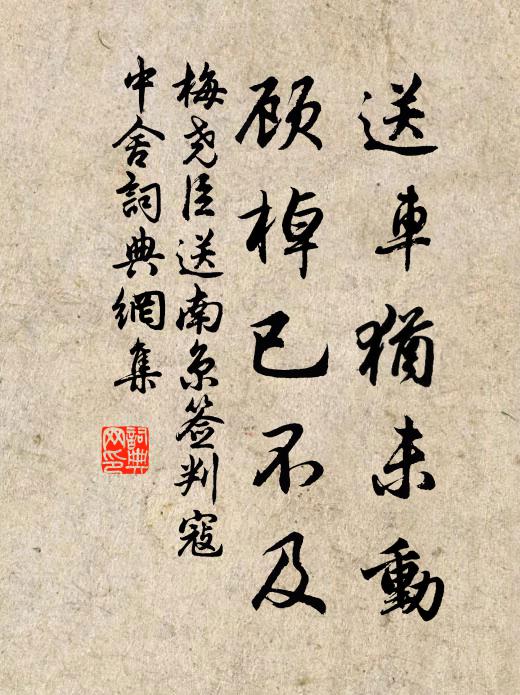 送車猶未動
顧棹已不及
梅堯臣送南京簽判寇
中舍詞典網集
詞典
网印